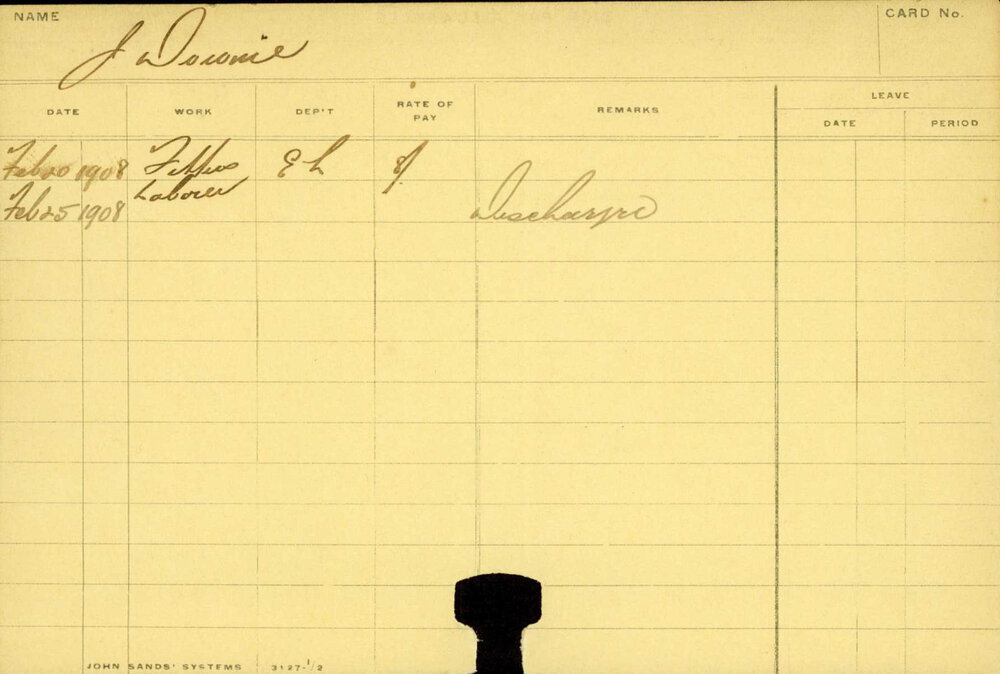 NAME
CARD No.
J Downie
DATE WORK DEP'T RATE OF PAY REMARKS LEAVE
DATE PERIOD
Feb 20 1908 Fitters E L
Laborer
Feb 25 1908 Discharged
JOHN SANDS' SYSTEMS 3127-1/2